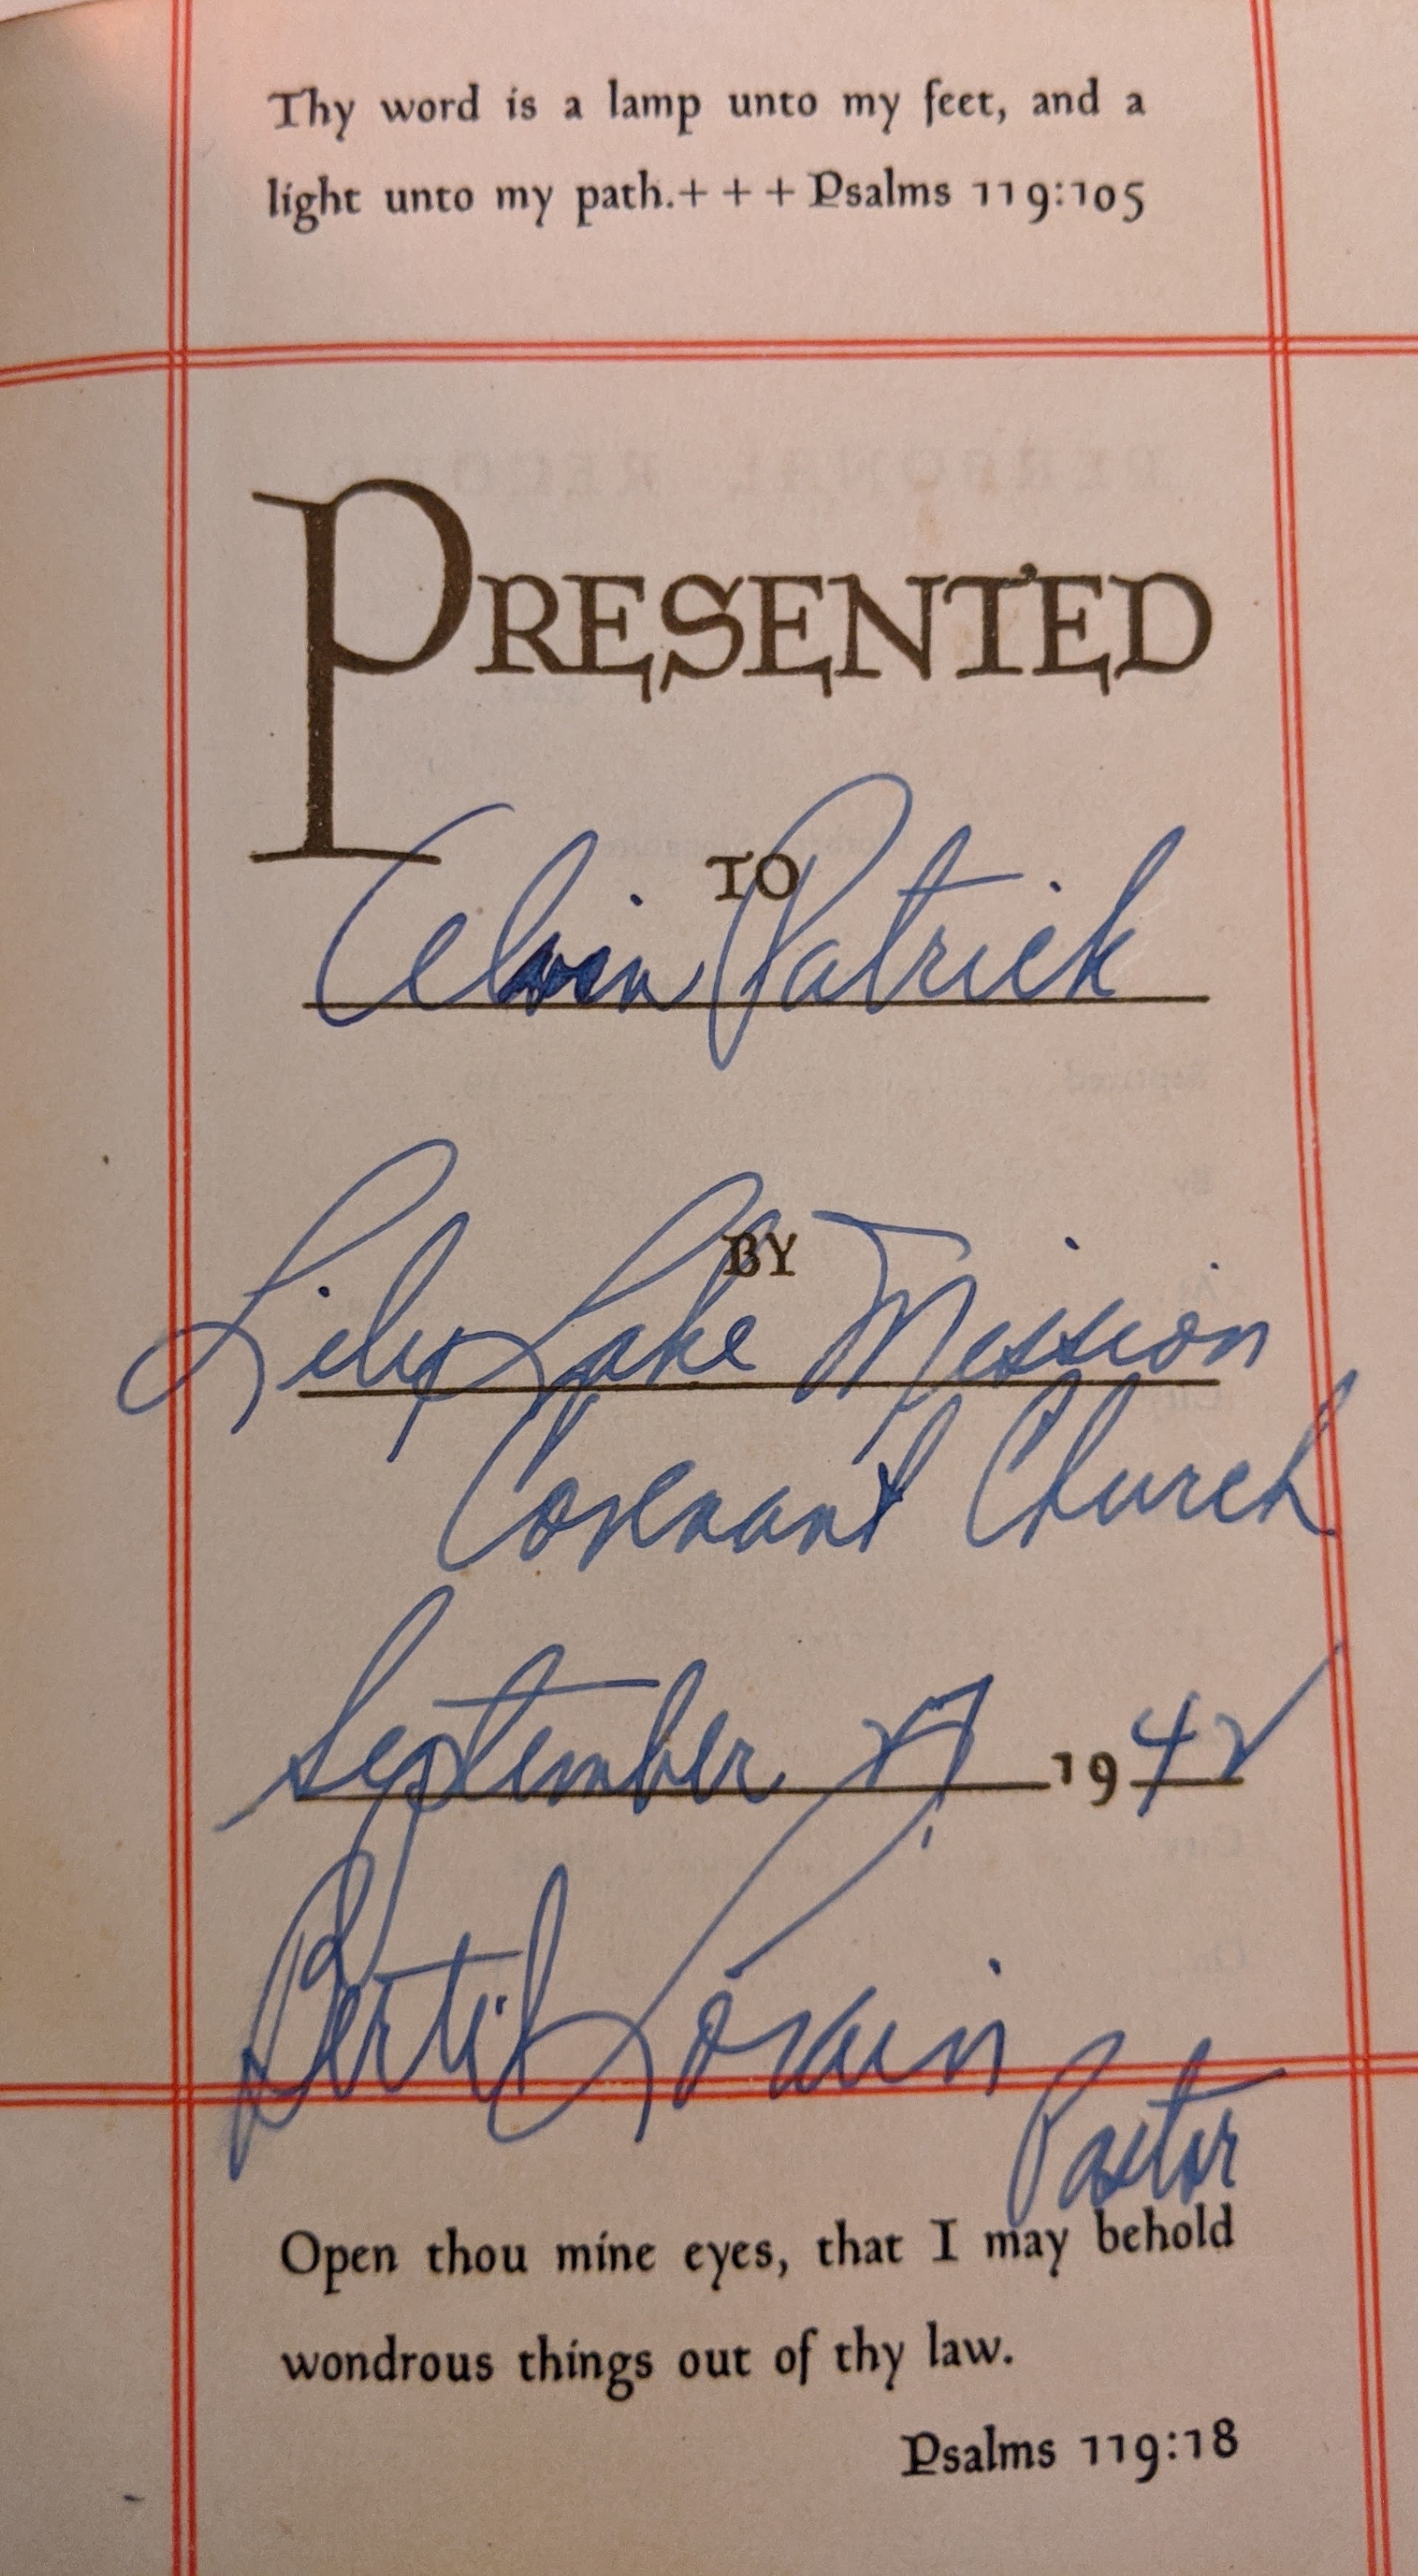 Thy word is a lamp unto my feet, and a
light unto my path.+ + + Psalms 119:105
PRESENTED
TO
Patrick
BY
Lily Lake Mission
Covenant Church
September 27 1942
Bertil
Pastor
Open thou mine eyes, that I may behold
wondrous things out of thy law.
Psalms 119:18